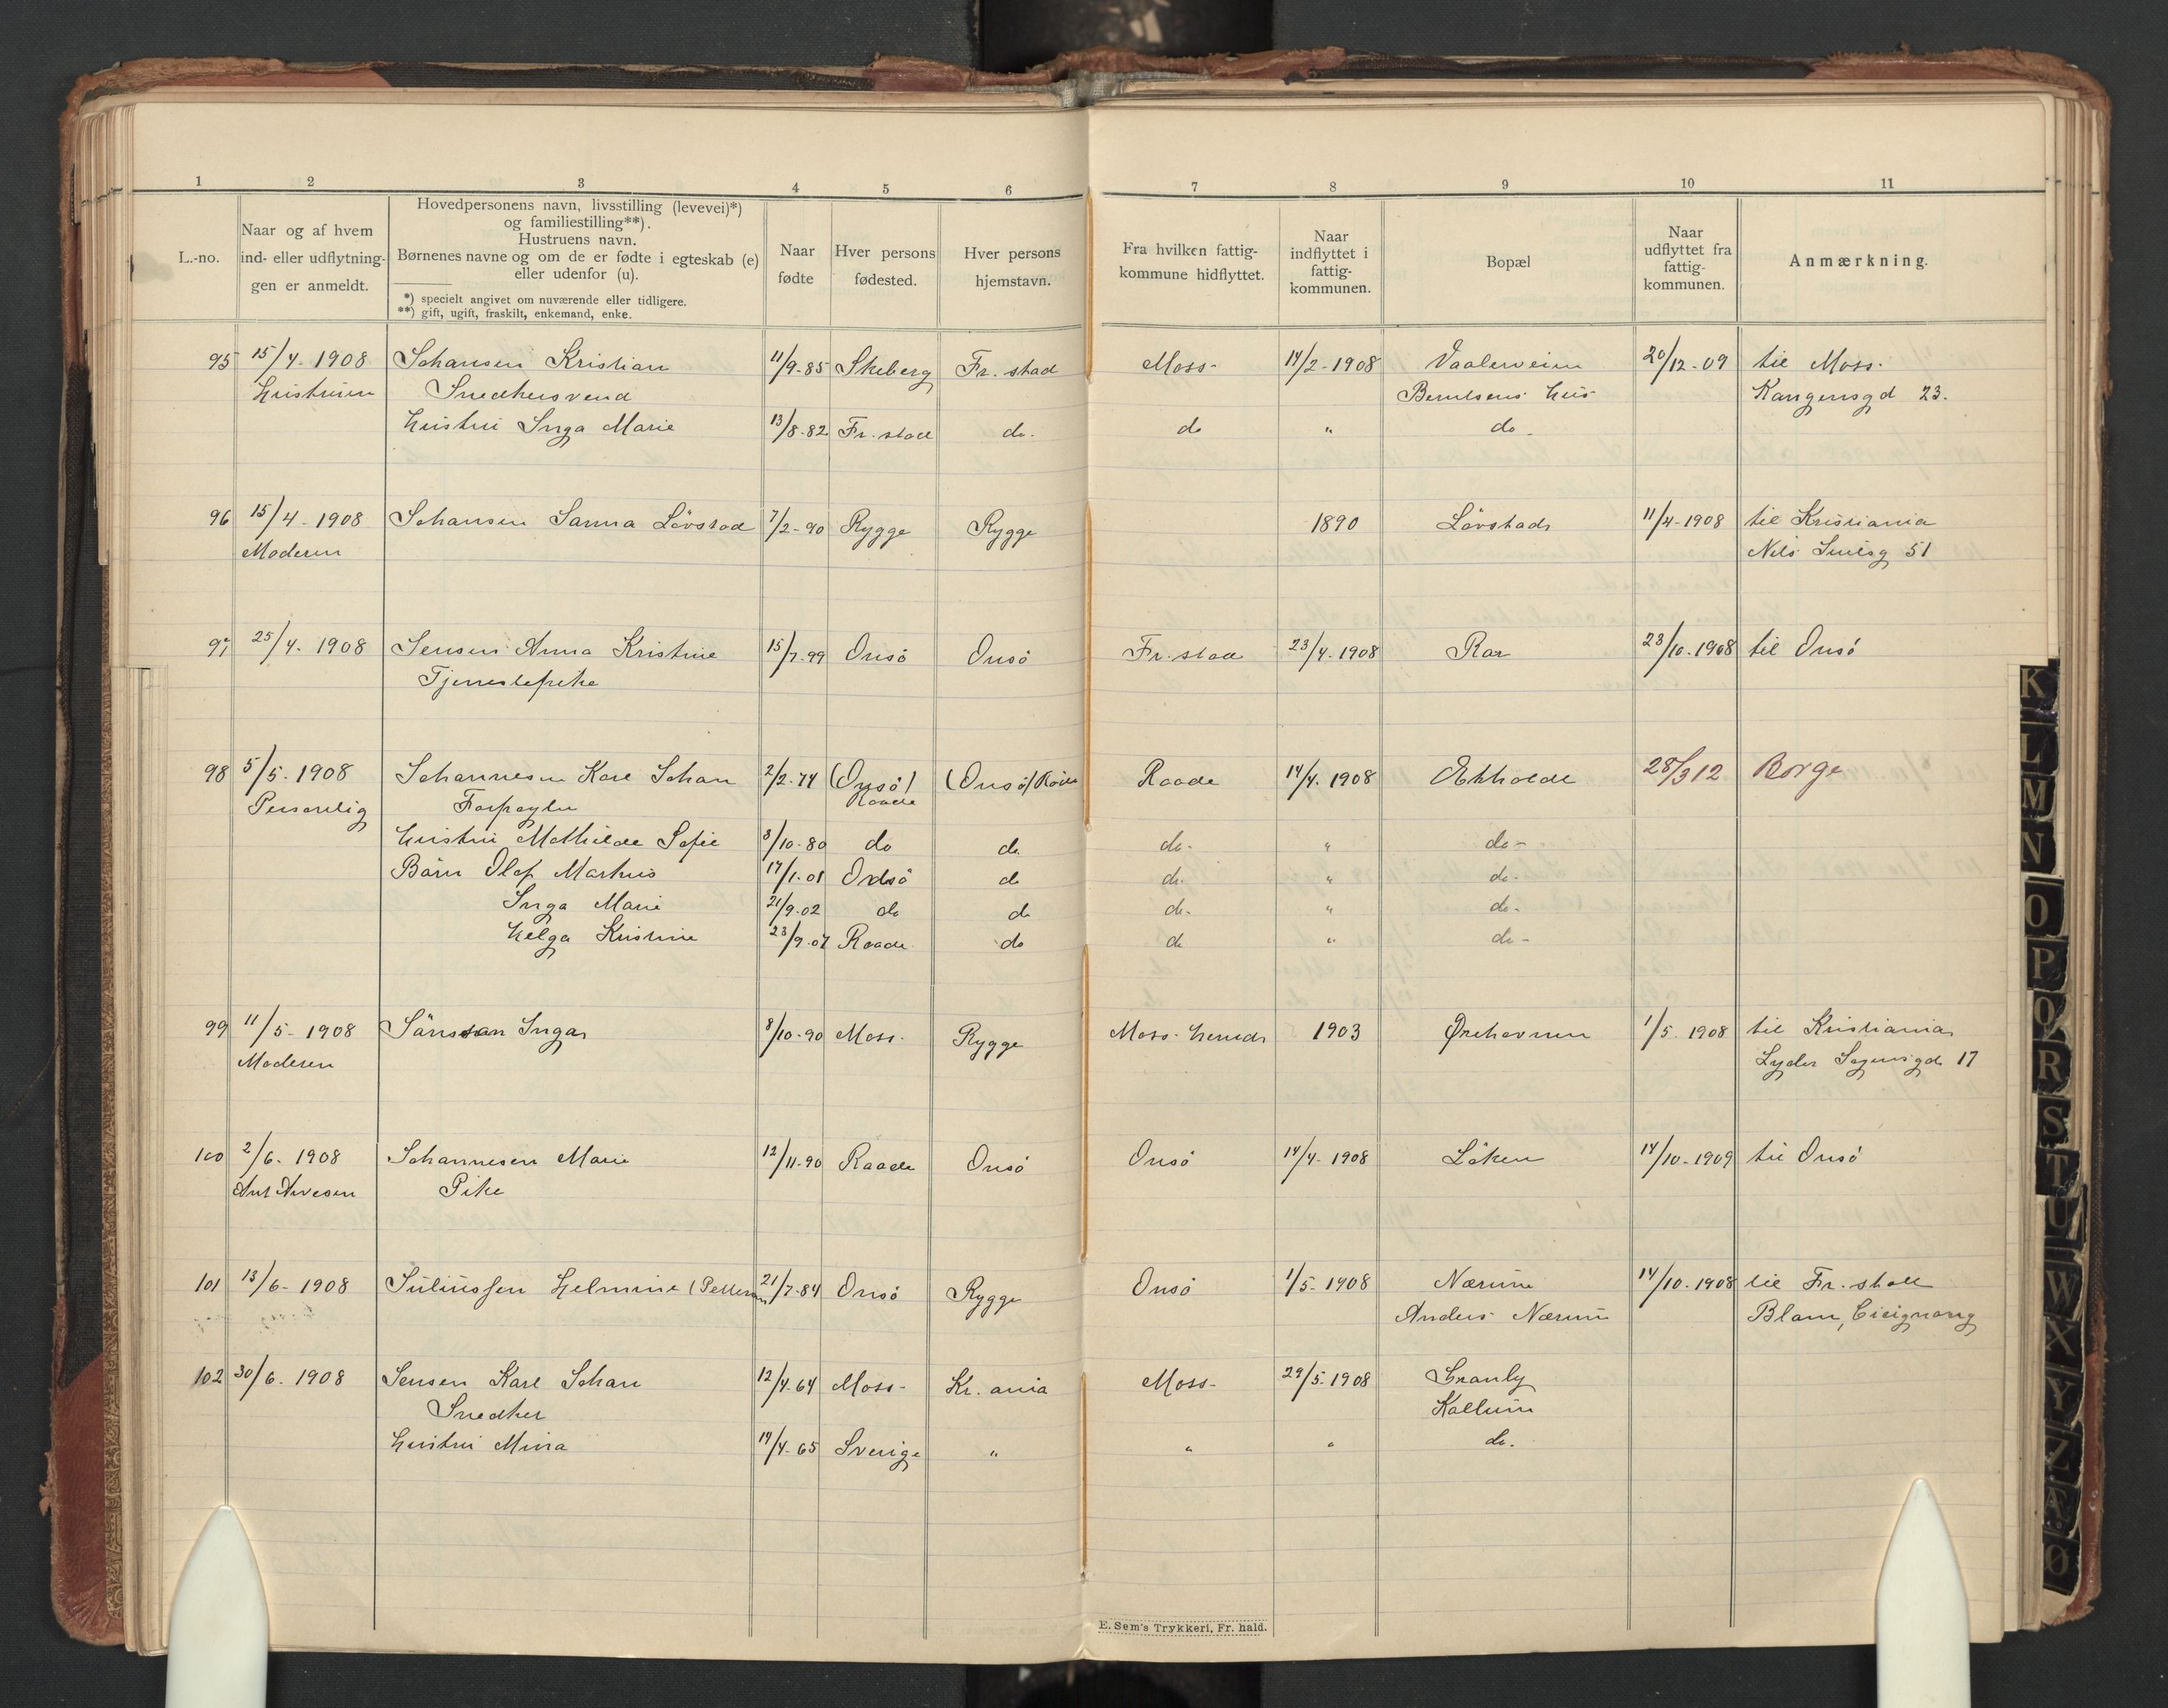 1 2 3 4 5 6 7 8 9 10 11
L.-no.
Naar og af hvem
ind- eller udflytnin-
gen er anmeldt.
Hovedpersonens navn, livsstilling (levevei)*)
og familiestilling**).
Hustruens navn.
Børnenes navne og om de er fødte i egteskab (e)
eller udenfor (u).
*) specielt angivet om nuværende eller tidligere.
**) gift, ugift, fraskilt, enkemand, enke.
Naar
fødte
Hver persons
fødested.
Hver persons
hjemstavn.
Fra hvilken fattig-
kommune hidflyttet.
Naar
indflyttet i
fattig-
kommunen.
Bopæl
Naar
udflyttet fra
fattig-
kommunen.
Anmærkning.
95 15/4-1908 Johansen Kristian 11/9-85 Skeberg Fr. stad Moss- 14/2-1908 Vaalerveien 20/12-09 til Moss.
Hustruen Snedkersvend Berntsens Hus Kangensgd 23.
Hustru Inga Marie 13/8-82 Fr. stad do. do " do.
96 15/4-1908 Johansen Sanna Lövstad 7/2-90 Rygge Rygge 1890 Lövstad 11/4-1908 til Kristiania
Moderen Nils 51
97 25/4-1908 Jensen Anna Kristine 15/7-99 Onsö Onsö Fr. stad 23/4-1908 Rør 23/10-1908 til Onsö
Tjenestepike
98 5/5-1908 Johannesen Karl Johan 2/2-74 (Onsö) (Onsö) Raade Raade 14/4-1908 Ekholdt 28/3 12 Borge
Personlig Forpagter Raade
Hustru Mathilde Sofie 3/10-80 do do do- " do-
Börn Olaf Markus 17/1-01 Onsö do do. " do-
Inga Marie 21/9-02 do do do- " do-
Helga Kristine 23/9-07 Raade do do " do-
99 11/5-1908 Inga 8/10-90 Moss. Rygge Moss. herred 1903 Ørehavnen 1/5-1908 til Kristiania
Moderen Lyder Sagensgd 17
100 2/6-1908 Johannesen Marie 12/11-90 Raade Onsö Onsö 14/4-1908 Löken 14/10-1909 til Onsö
Ant Arvesen Pike
101 13/6-1908 Juliussen Helmine (Pettersen 21/7-84 Onsö Rygge Onsö 1/5-1908 Nærum 14/10-1908 til Fr. stad
Anders Nærum Blom, Cicignong
102 30/6-1908 Jensen Karl Johan 12/4-64 Moss- Kr. ania Moss- 29/5-1908 Granly
Snedker Kallum
Hustru Mina 19/4-65 Sverige " " " do.
E. Sem's Trykkeri, Fr. hald.
K
L
M
N
O
P
Q
R
S
T
U
W
X
Y
Z
Ø